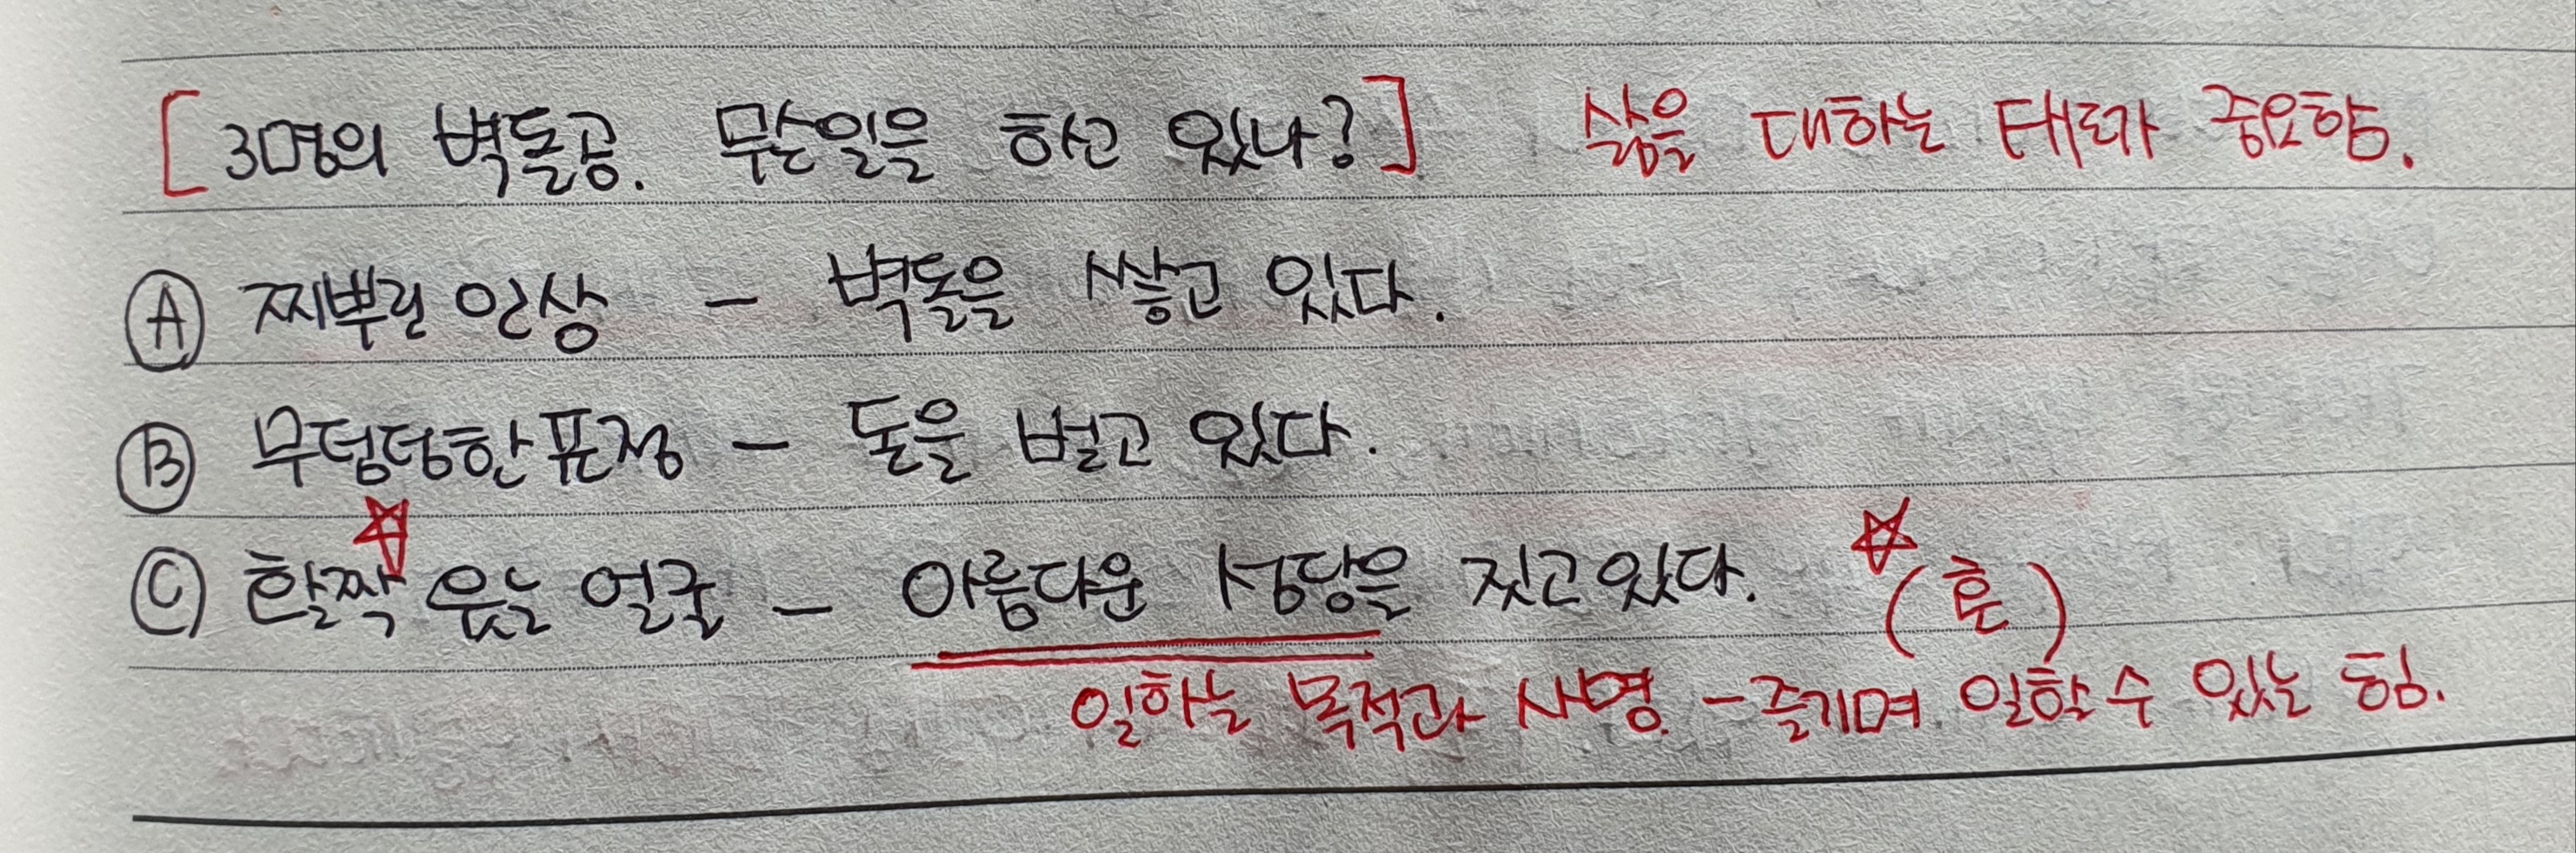 [3명의 벽돌공. 무슨일을 하고 있나?] 삶을 대하는 태도가 중요함.
Ⓐ 찌뿌린 인상 - 벽돌을 쌓고 있다.
Ⓑ 무덤덤한 표정 - 돈을 벌고 있다.
Ⓒ 활짝 웃는 얼굴 - 아름다운 성당을 짓고 있다. ☆(혼)
일하는 목적과 사명. - 즐기며 일할 수 있는 힘.